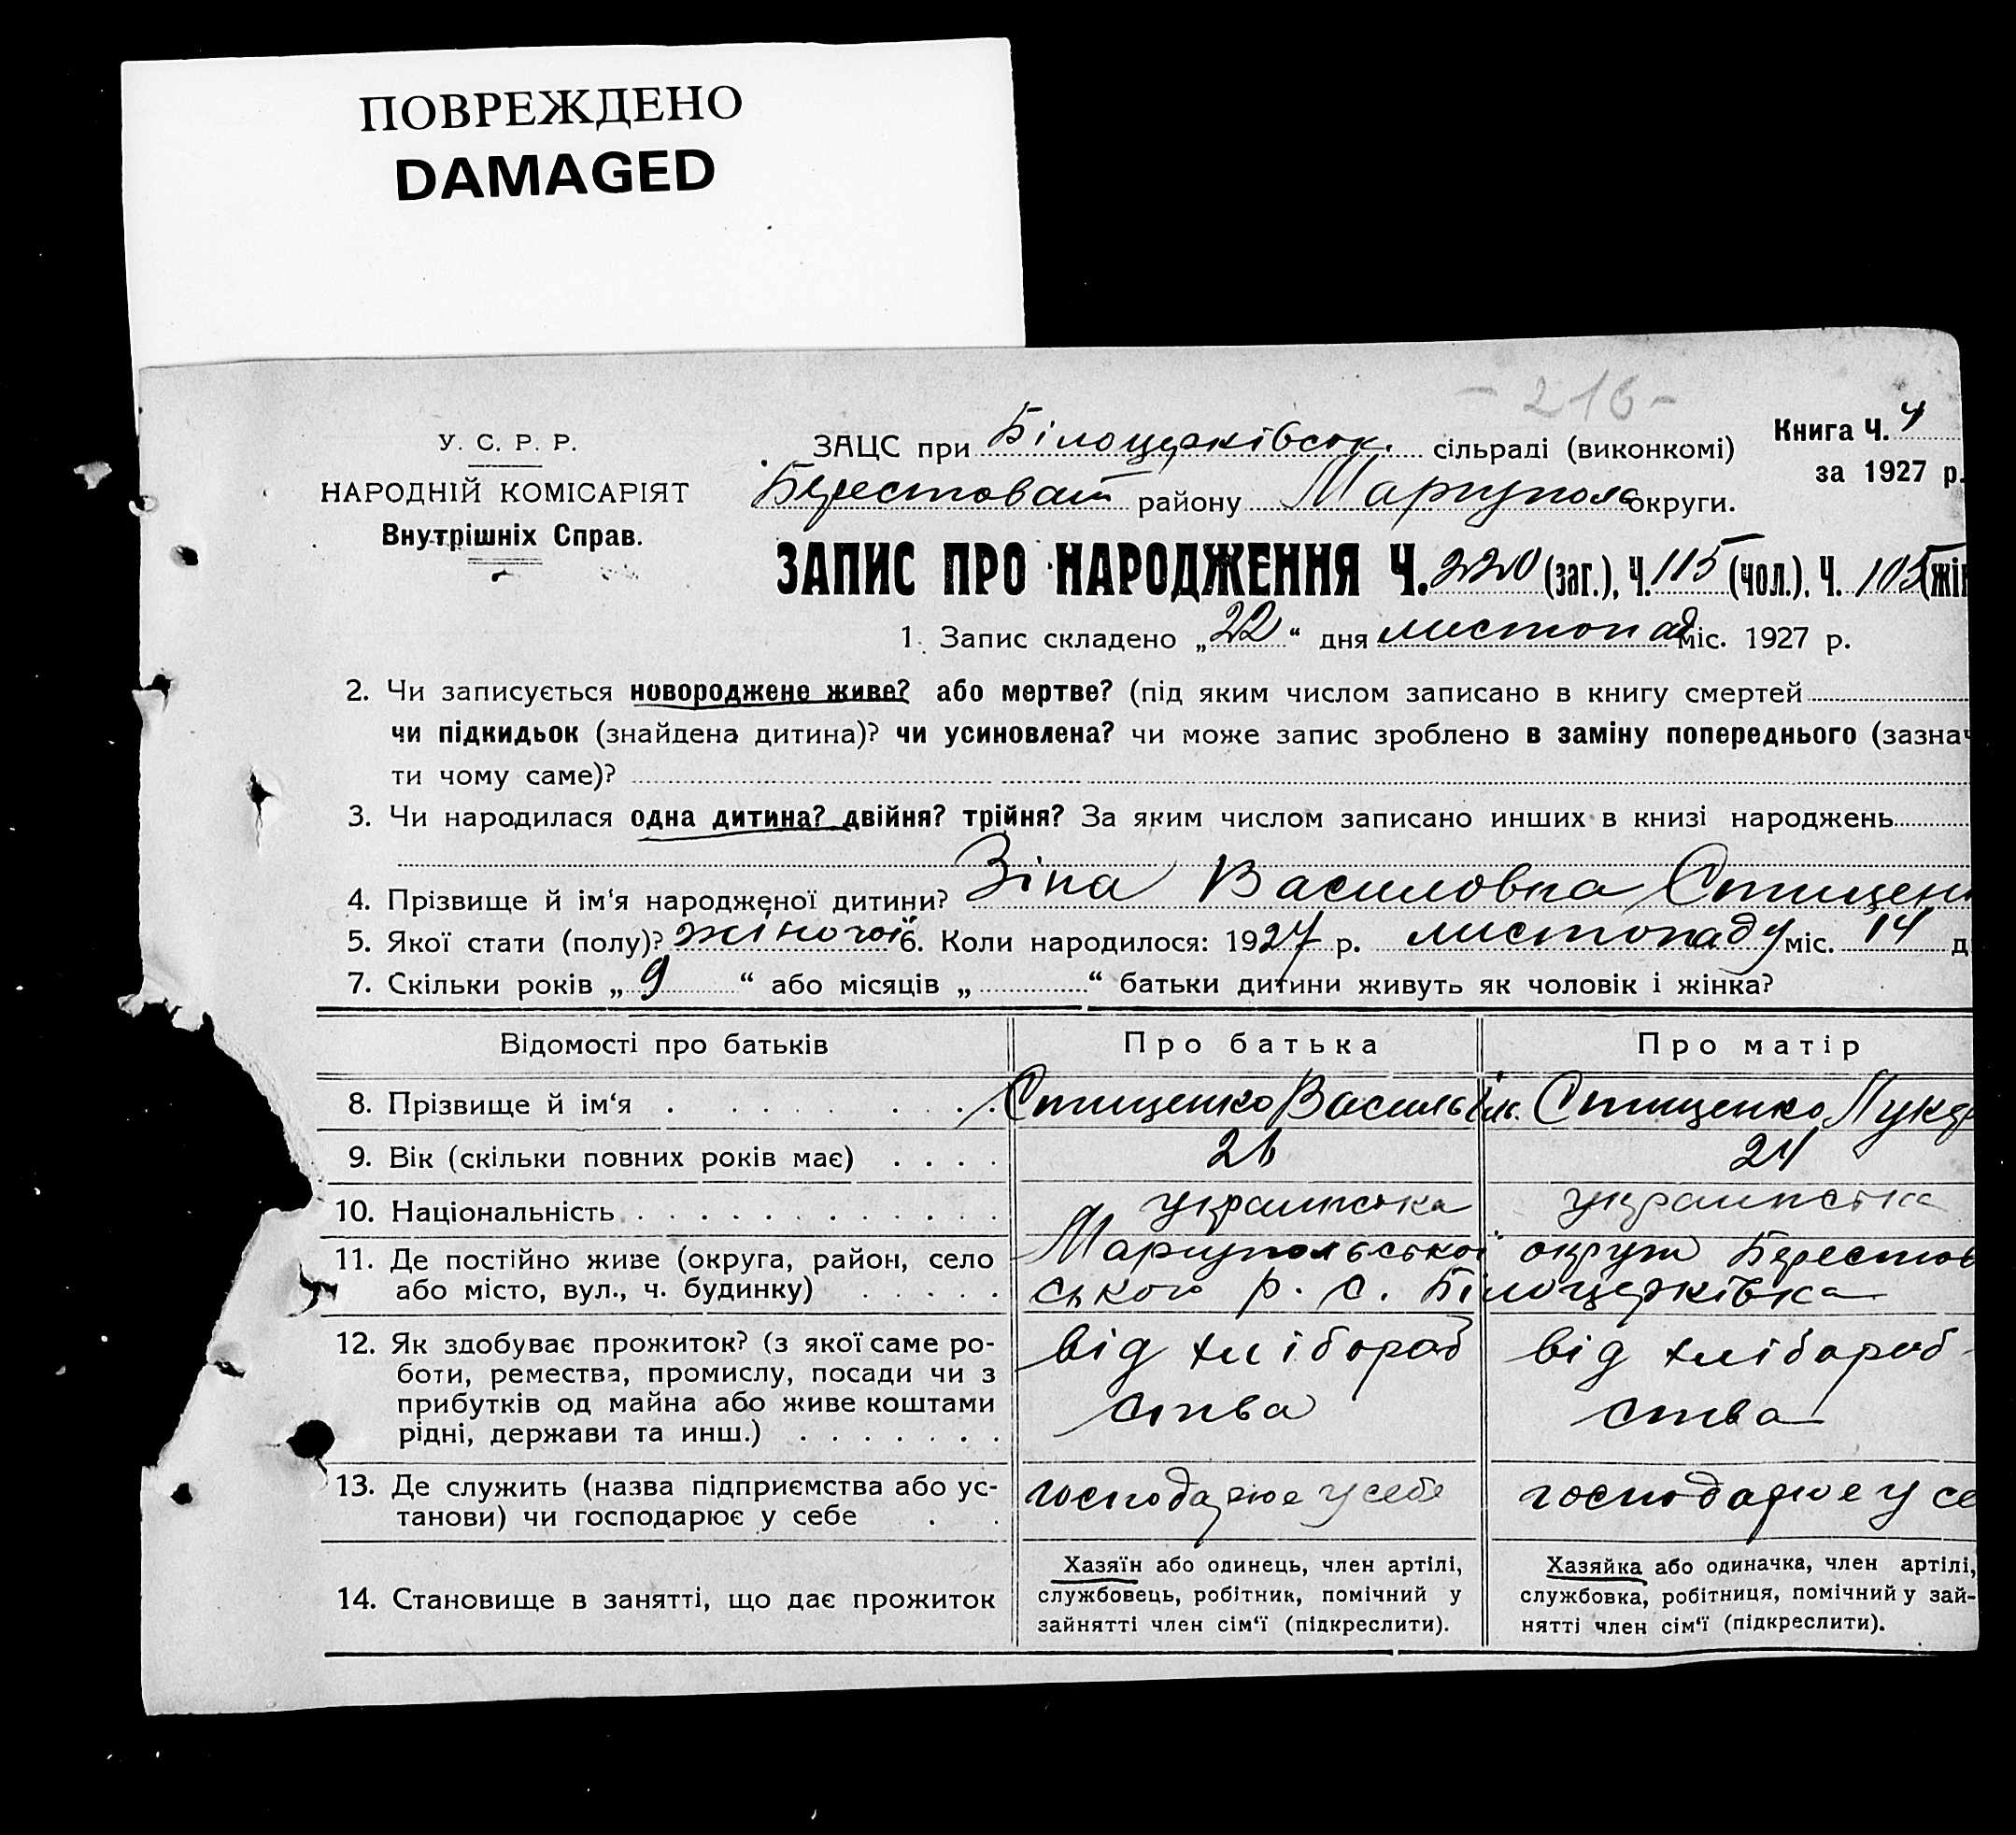 ПОВРЕЖДЕНО
DAMAGED
- 216 -
У. С. Р. Р.
НАРОДНІЙ КОМІСАРІЯТ
Внутрішніх Справ.
ЗАЦС при Білоцерківськ. сільраді (виконкомі)
Книга Ч. 4
за 1927 р.
Берестоват району Маріуполь округи.
ЗАПИС ПРО НАРОДЖЕННЯ Ч. 220 (заг.), Ч. 115 (чол.), Ч. 105 (жін
1. Запис складено „22“ дня листопад міс. 1927 р.
2. Чи записується новороджене живе? або мертве? (під яким числом записано в книгу смертей
чи підкидьок (знайдена дитина)? чи усиновлена? чи може запис зроблено в заміну попереднього (зазнач
ти чому саме)?
3. Чи народилася одна дитина? двійня? трійня? За яким числом записано инших в книзі народжень
4. Прізвище й ім‘я народженої дитини? Зіна Василовна Стищенк
5. Якої стати (полу)? жіночої 6. Коли народилося: 1927 р. листопаду міс. 14 д
7. Скільки років „9“ або місяців „ “ батьки дитини живуть як чоловік і жінка?
Відомості про батьків Про батька Про матір
8. Прізвище й ім‘я Стищенко Василь Стищенко
9. Вік (скільки повних років має) 26 24
10. Національність украінська украінська
11. Де постійно живе (округа, район, село
або місто, вул., ч. будинку)
Маріупольськоі округи Берестов
ського р. с. Білоцерківка
12. Як здобуває прожиток? (з якої саме ро-
боти, ремества, промислу, посади чи з
прибутків од майна або живе коштами
рідні, держави та инш.)
від хлібороб
ства
від хлібороб-
ства
13. Де служить (назва підприємства або ус-
танови) чи господарює у себе
господарює у себе
господарює у се
14. Становище в занятті, що дає прожиток
Хазяїн або одинець, член артілі,
службовець, робітник, помічний у
зайнятті член сім‘ї (підкреслити).
Хазяйка або одиначка, член артілі,
службовка, робітниця, помічний у зай-
нятті член сім‘ї (підкреслити).